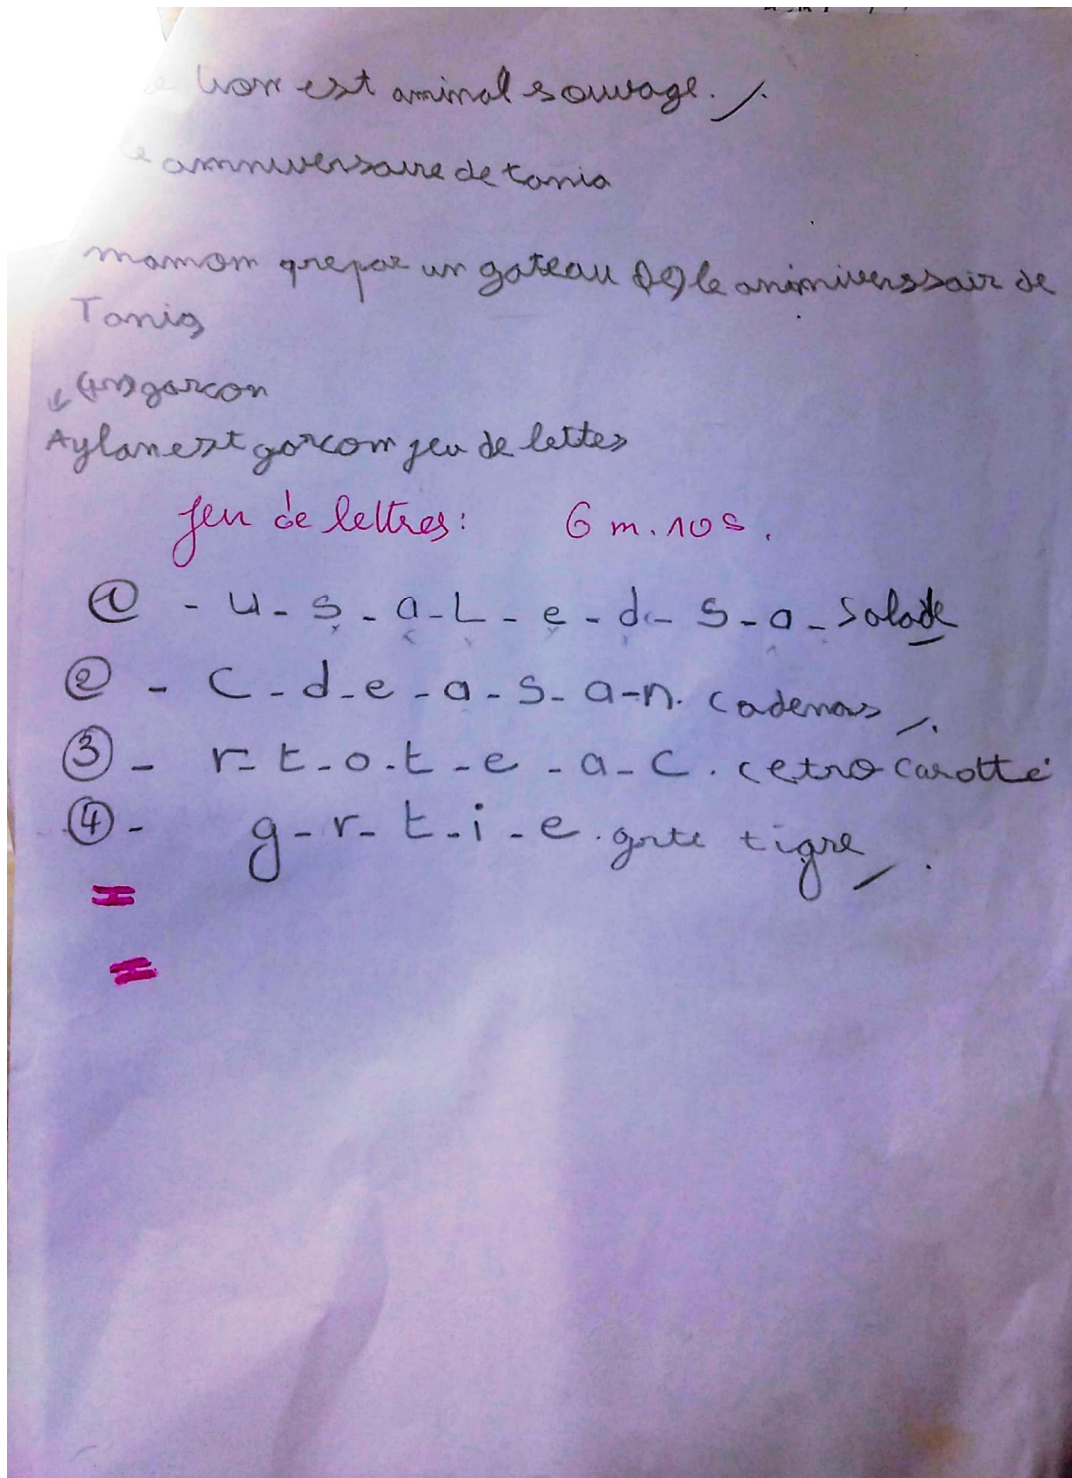 e lion est aminal souvage.
le anniversaire de tania
mamam prepar un gateau le anniverssair de
Tania
(un) garcon
Aylan est garcom jeu de lettes
jeu de lettres: 6 m. 10 s.
① - u - s - a - L - e - d - s - a - salade
② - c - d - e - a - s - a - n. cadenas
③ - r - t - o - t - e - a - c. cetro carotte
④ - g - r - t - i - e. grte tigre